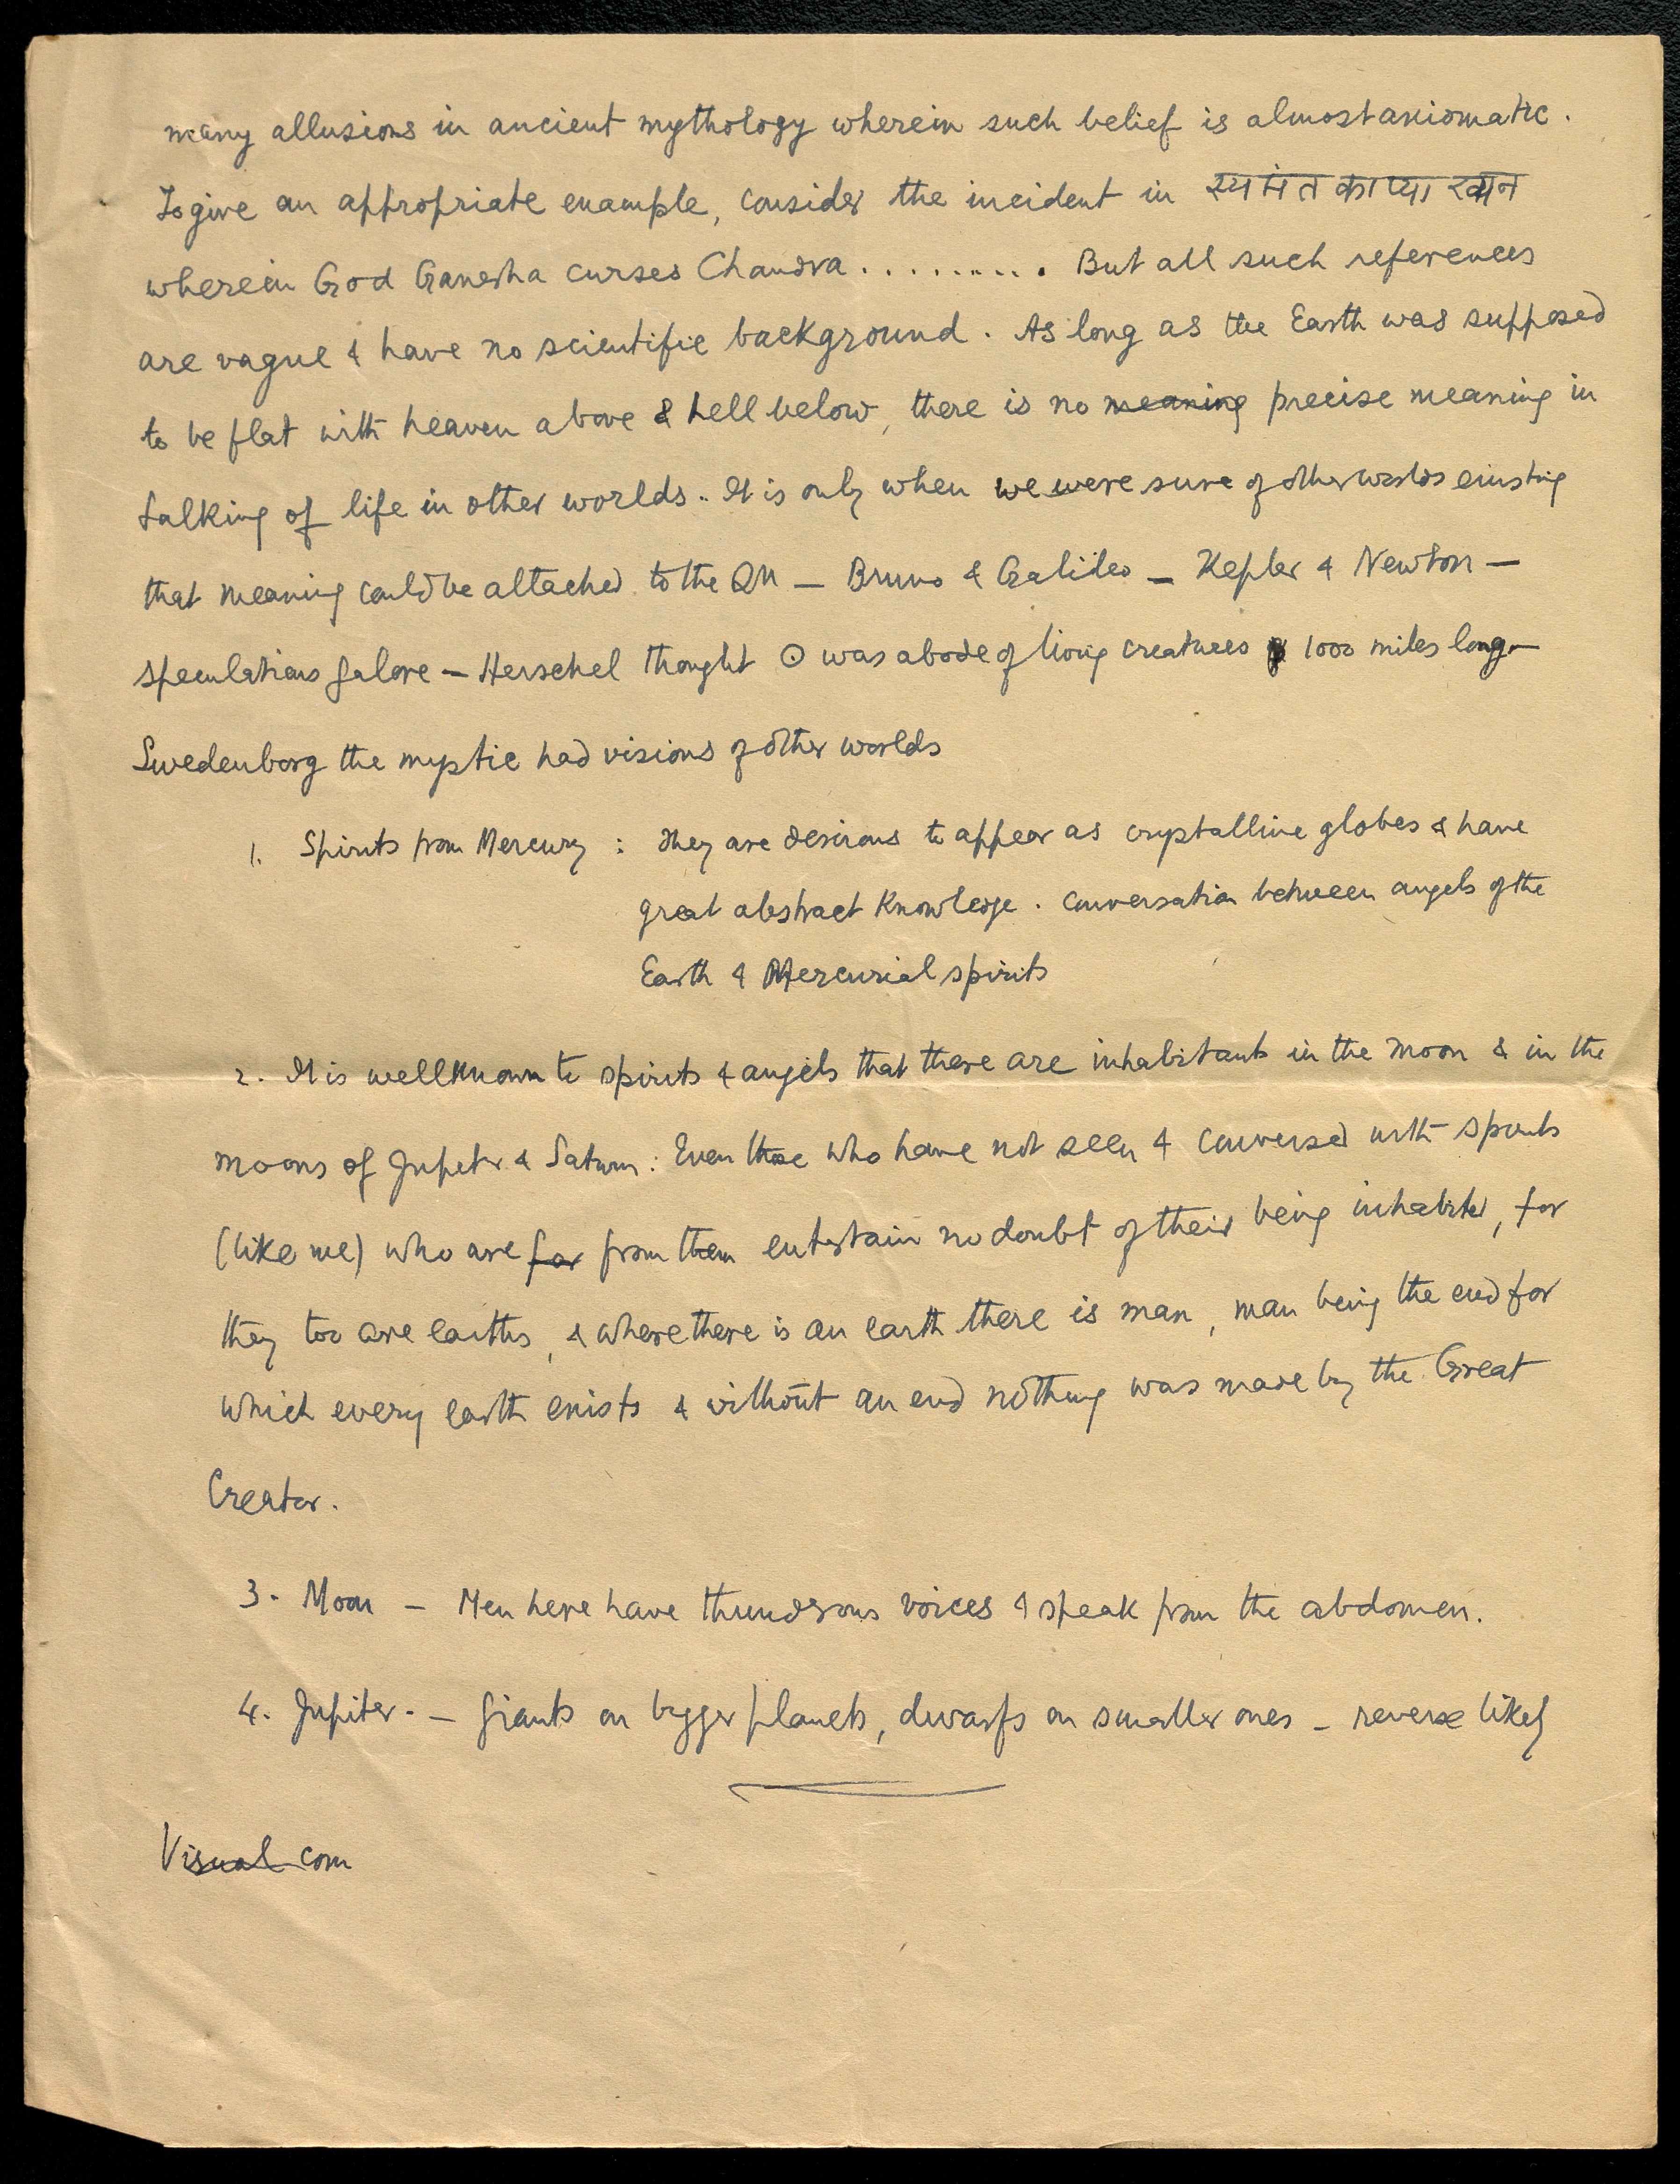 many allusions in ancient mythology wherein such belief is almost axiomatic.
To give an appropriate example, consider the incident in
wherein God Ganesha curses Chandra .......... But all such references
are vague & have no scientific background. As long as the Earth was supposed
to be flat with heaven above & hell below, there is no meaning precise meaning in
talking of life in other worlds.. It is only when we were sure of other worlds existing
that meaning could be attached to the QN — Bruno & Galileo — Kepler & Newton —
speculations galore — Herschel thought ⊙ was abode of living creatures 1000 miles long —
Swedenborg the mystic had visions of other worlds
1. Spirits from Mercury : They are desirous to appear as crystalline globes & have
great abstract knowledge. conversation between angels of the
Earth & Mercurial spirits
2. It is wellknown to spirits & angels that there are inhabitants in the moon & in the
moons of Jupiter & Saturn: Even those who have not seen & conversed with spirits
(like me) who are far from them entertain no doubt of their being inhabited, for
they too are earths, & where there is an earth there is man, man being the end for
which every earth exists & without an end nothing was made by the Great
Creator.
3. Moon — Men here have thunderous voices & speak from the abdomen.
4. Jupiter. — Giants on bigger planets, dwarfs on smaller ones — reverse likely
Visual com